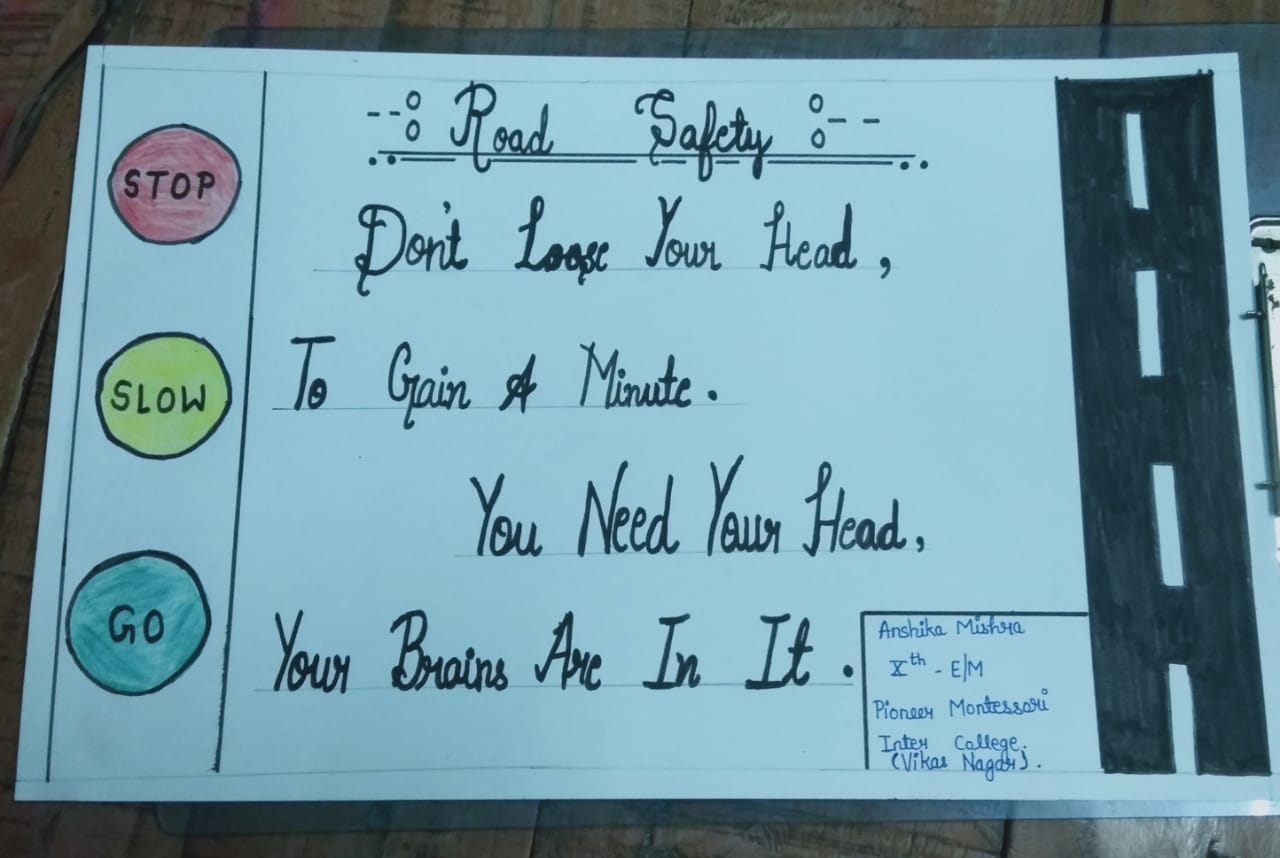 STOP
SLOW
GO
--: Road Safety :--
Don't Loose Your Head,
To Gain A Minute.
You Need Your Head,
Your Brains Are In It.
Anshika Mishra
Xth - E/M
Pioneer Montessori
Inter College.
(Vikas Nagar).